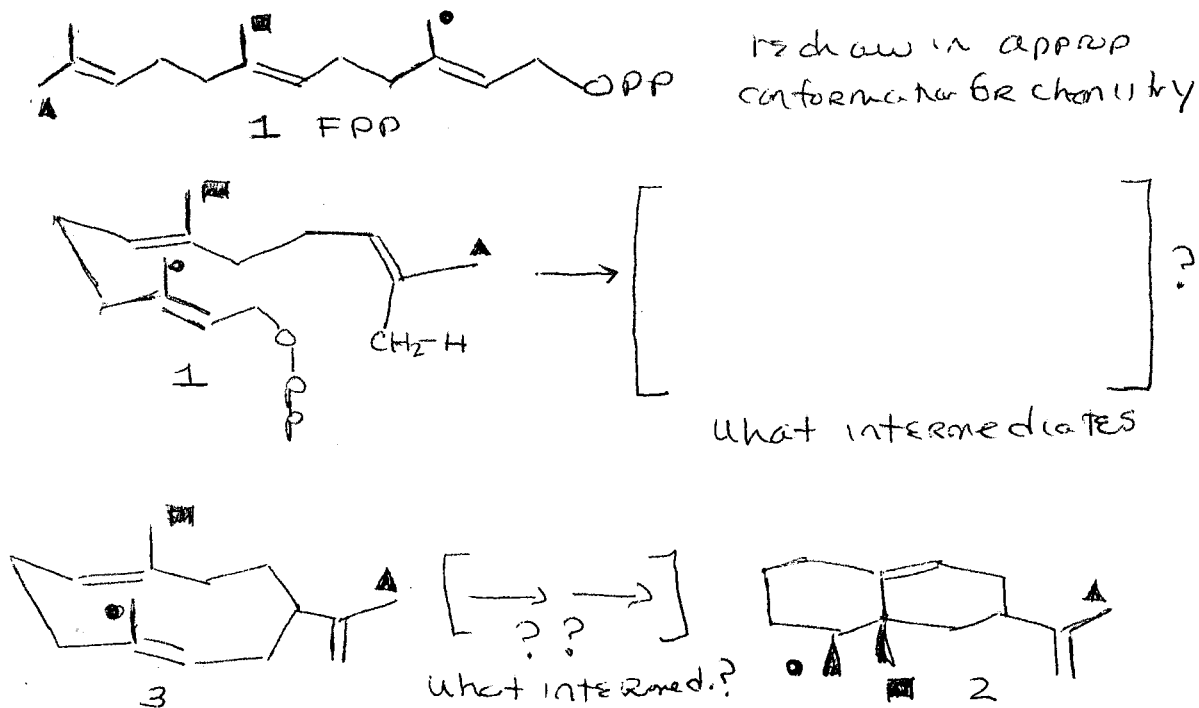 OPP
redraw in approp
1 FPP
conformation for chemistry
CH2-H
O
P
P
1
?
what intermediates
? ?
3
what intermed.?
2